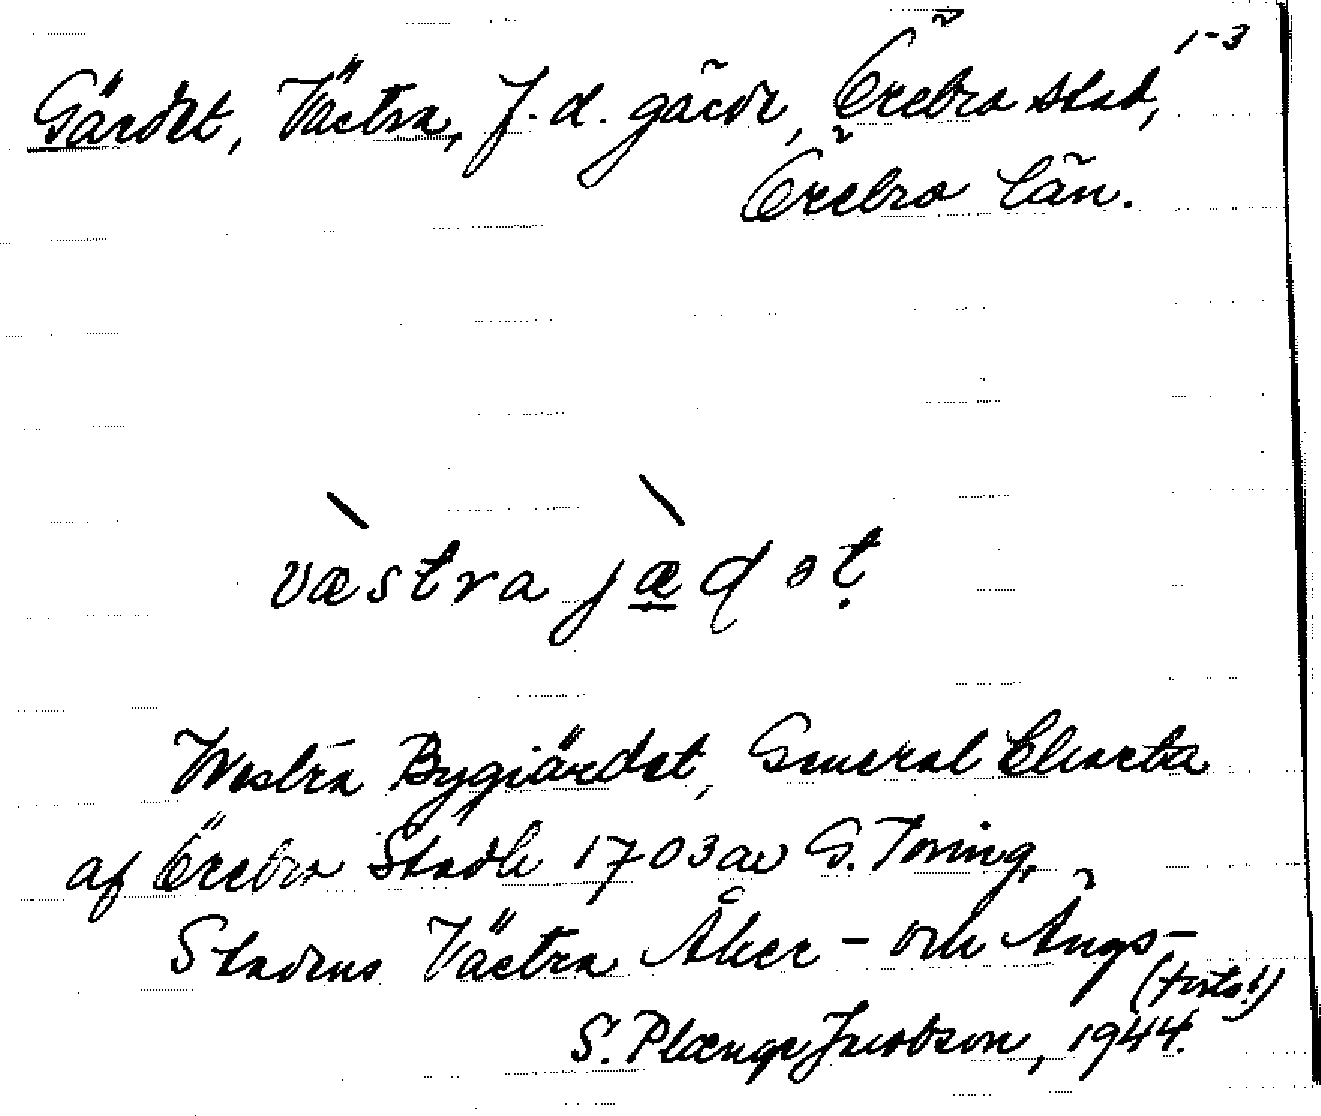 1-3
Gärdet, Västra, f.d. gärde, Örebro stad,
Örebro län.
væ̀stra jæ̀ḍət
Westra Bygiärdet, General Charta
af Örebro Stadh 1703 av G. Toring,
Stadens Västra Åker- och Ängs-
(forts!)
S. Plænge Jacobson, 1944.